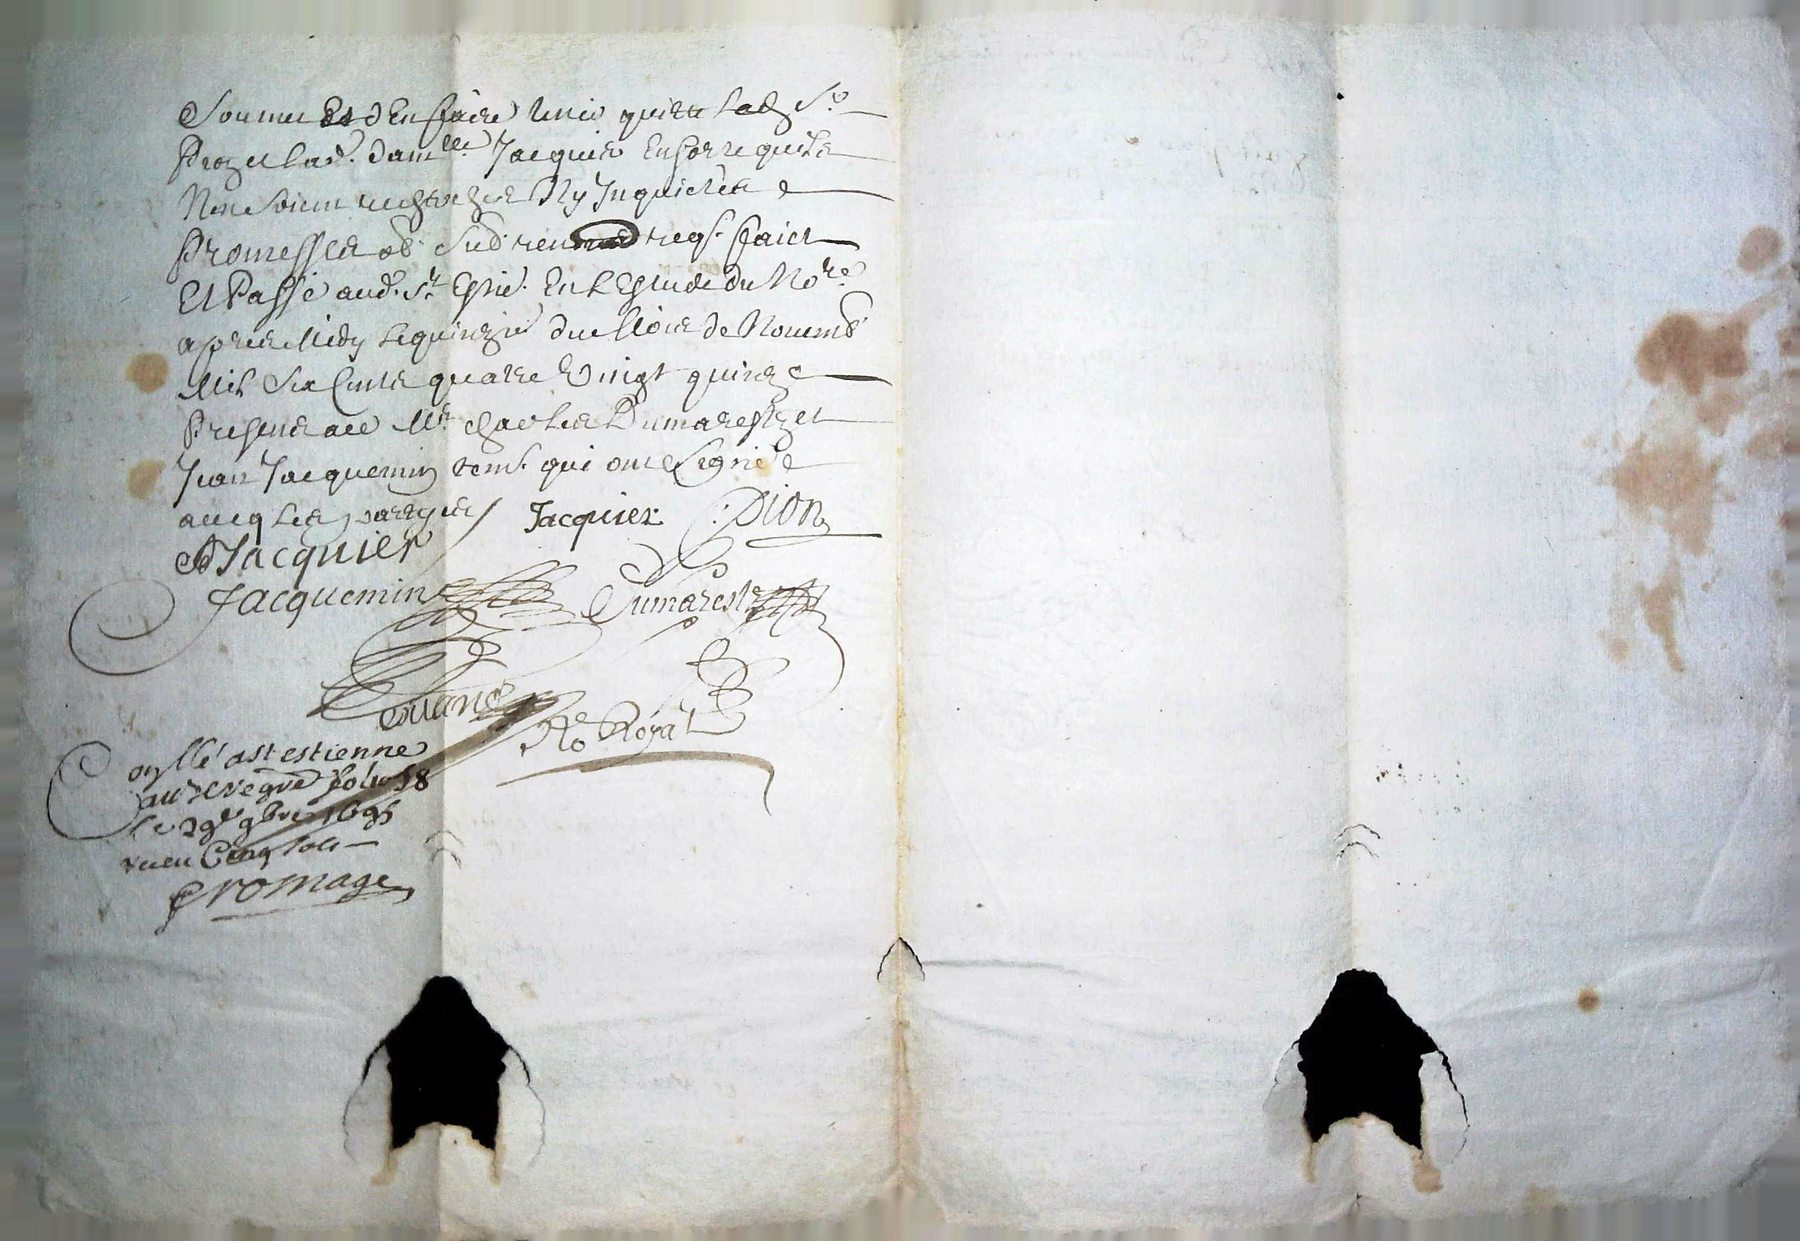 Somme et d'En faire tenir quitte lad. Sr
Proz et lad. damlle Jacquier En sorte quils
N'en soient recherchez Ny Inquietés
Promesses ob. sub. ren. req. ffaict
Et Passé aud. St Estie. En L'Estude du Nore
apres Midy le quinzie du Mois de Novemb
Mil Six Cents quatre Vingt quinze
Presens a ce Mr Charles Dumarest et
Jean Jacquemin tem. qui ont Signé
avecq les partyes / Jacquier Dion
Jacquier
Jacquemin Dumarest
No Royal
onllé a st estienne
au regre folio 58
le 29e 9bre 1695
receu Cinq sols
Fromage